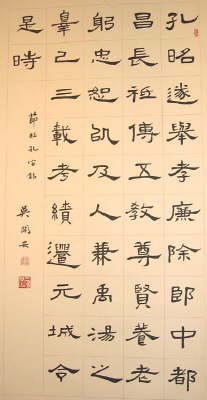 孔昭遂舉孝廉除郎中都
昌長祗傅五教尊賢養老
躬忠恕㠯及人兼禹湯之
辠己三載考績遷元城令
是時
節孔宙
吳安